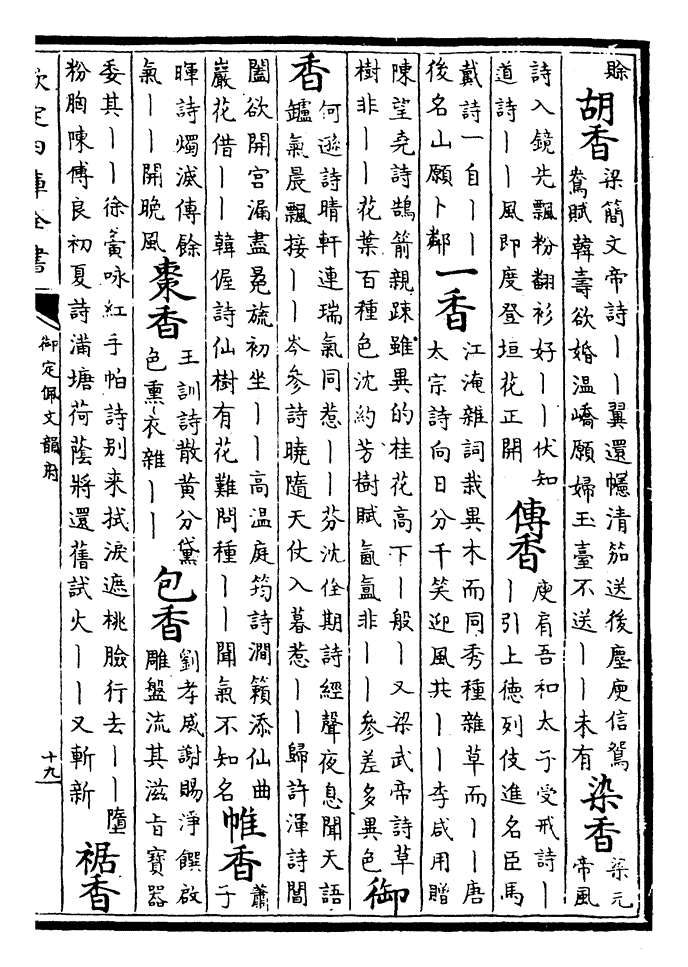 賒
胡香
梁簡文帝詩丨丨翼還幰清笳送後塵庾信鴛
鴦賦韓壽欲婚温嶠願婦玉臺不送丨丨未有
染香
梁元
帝風
詩入鏡先飄粉翻衫好丨丨伏知
道詩丨丨風即度登垣花正開
傳香
庾肩吾和太子受戒詩丨
丨引上徳列伎進名臣馬
戴詩一自丨丨
後名山願卜鄰
一香
江淹雜詞栽異木而同秀種雜草而丨丨唐
太宗詩向日分千笑迎風共丨丨李咸用贈
陳望堯詩鵠箭親踈雖異的桂花高下丨般丨又梁武帝詩草
樹非丨丨花葉百種色沈約芳樹賦氤氲非丨丨參差多異色
御
香
何遜詩晴軒連瑞氣同惹丨丨芬沈佺期詩經聲夜息聞天語
鑪氣晨飄接丨丨岑參詩曉隨天仗入暮惹丨丨歸許渾詩閶
闔欲開宮漏盡冕旒初坐丨丨高温庭筠詩澗籟添仙曲
巖花借丨丨韓偓詩仙樹有花難問種丨丨聞氣不知名
帷香
蕭
子
暉詩燭滅傳餘
氣丨丨開晚風
棗香
王訓詩散黄分黛
色熏衣雜丨丨
包香
劉孝威謝賜淨饌啟
雕盤流其滋旨寶器
委其丨丨徐夤咏紅手帕詩别来拭淚遮桃臉行去丨丨墮
粉胸陳傅良初夏詩滿塘荷蔭將還舊試火丨丨又斬新
裾香
欽定四庫全書
御定佩文韻府
十九